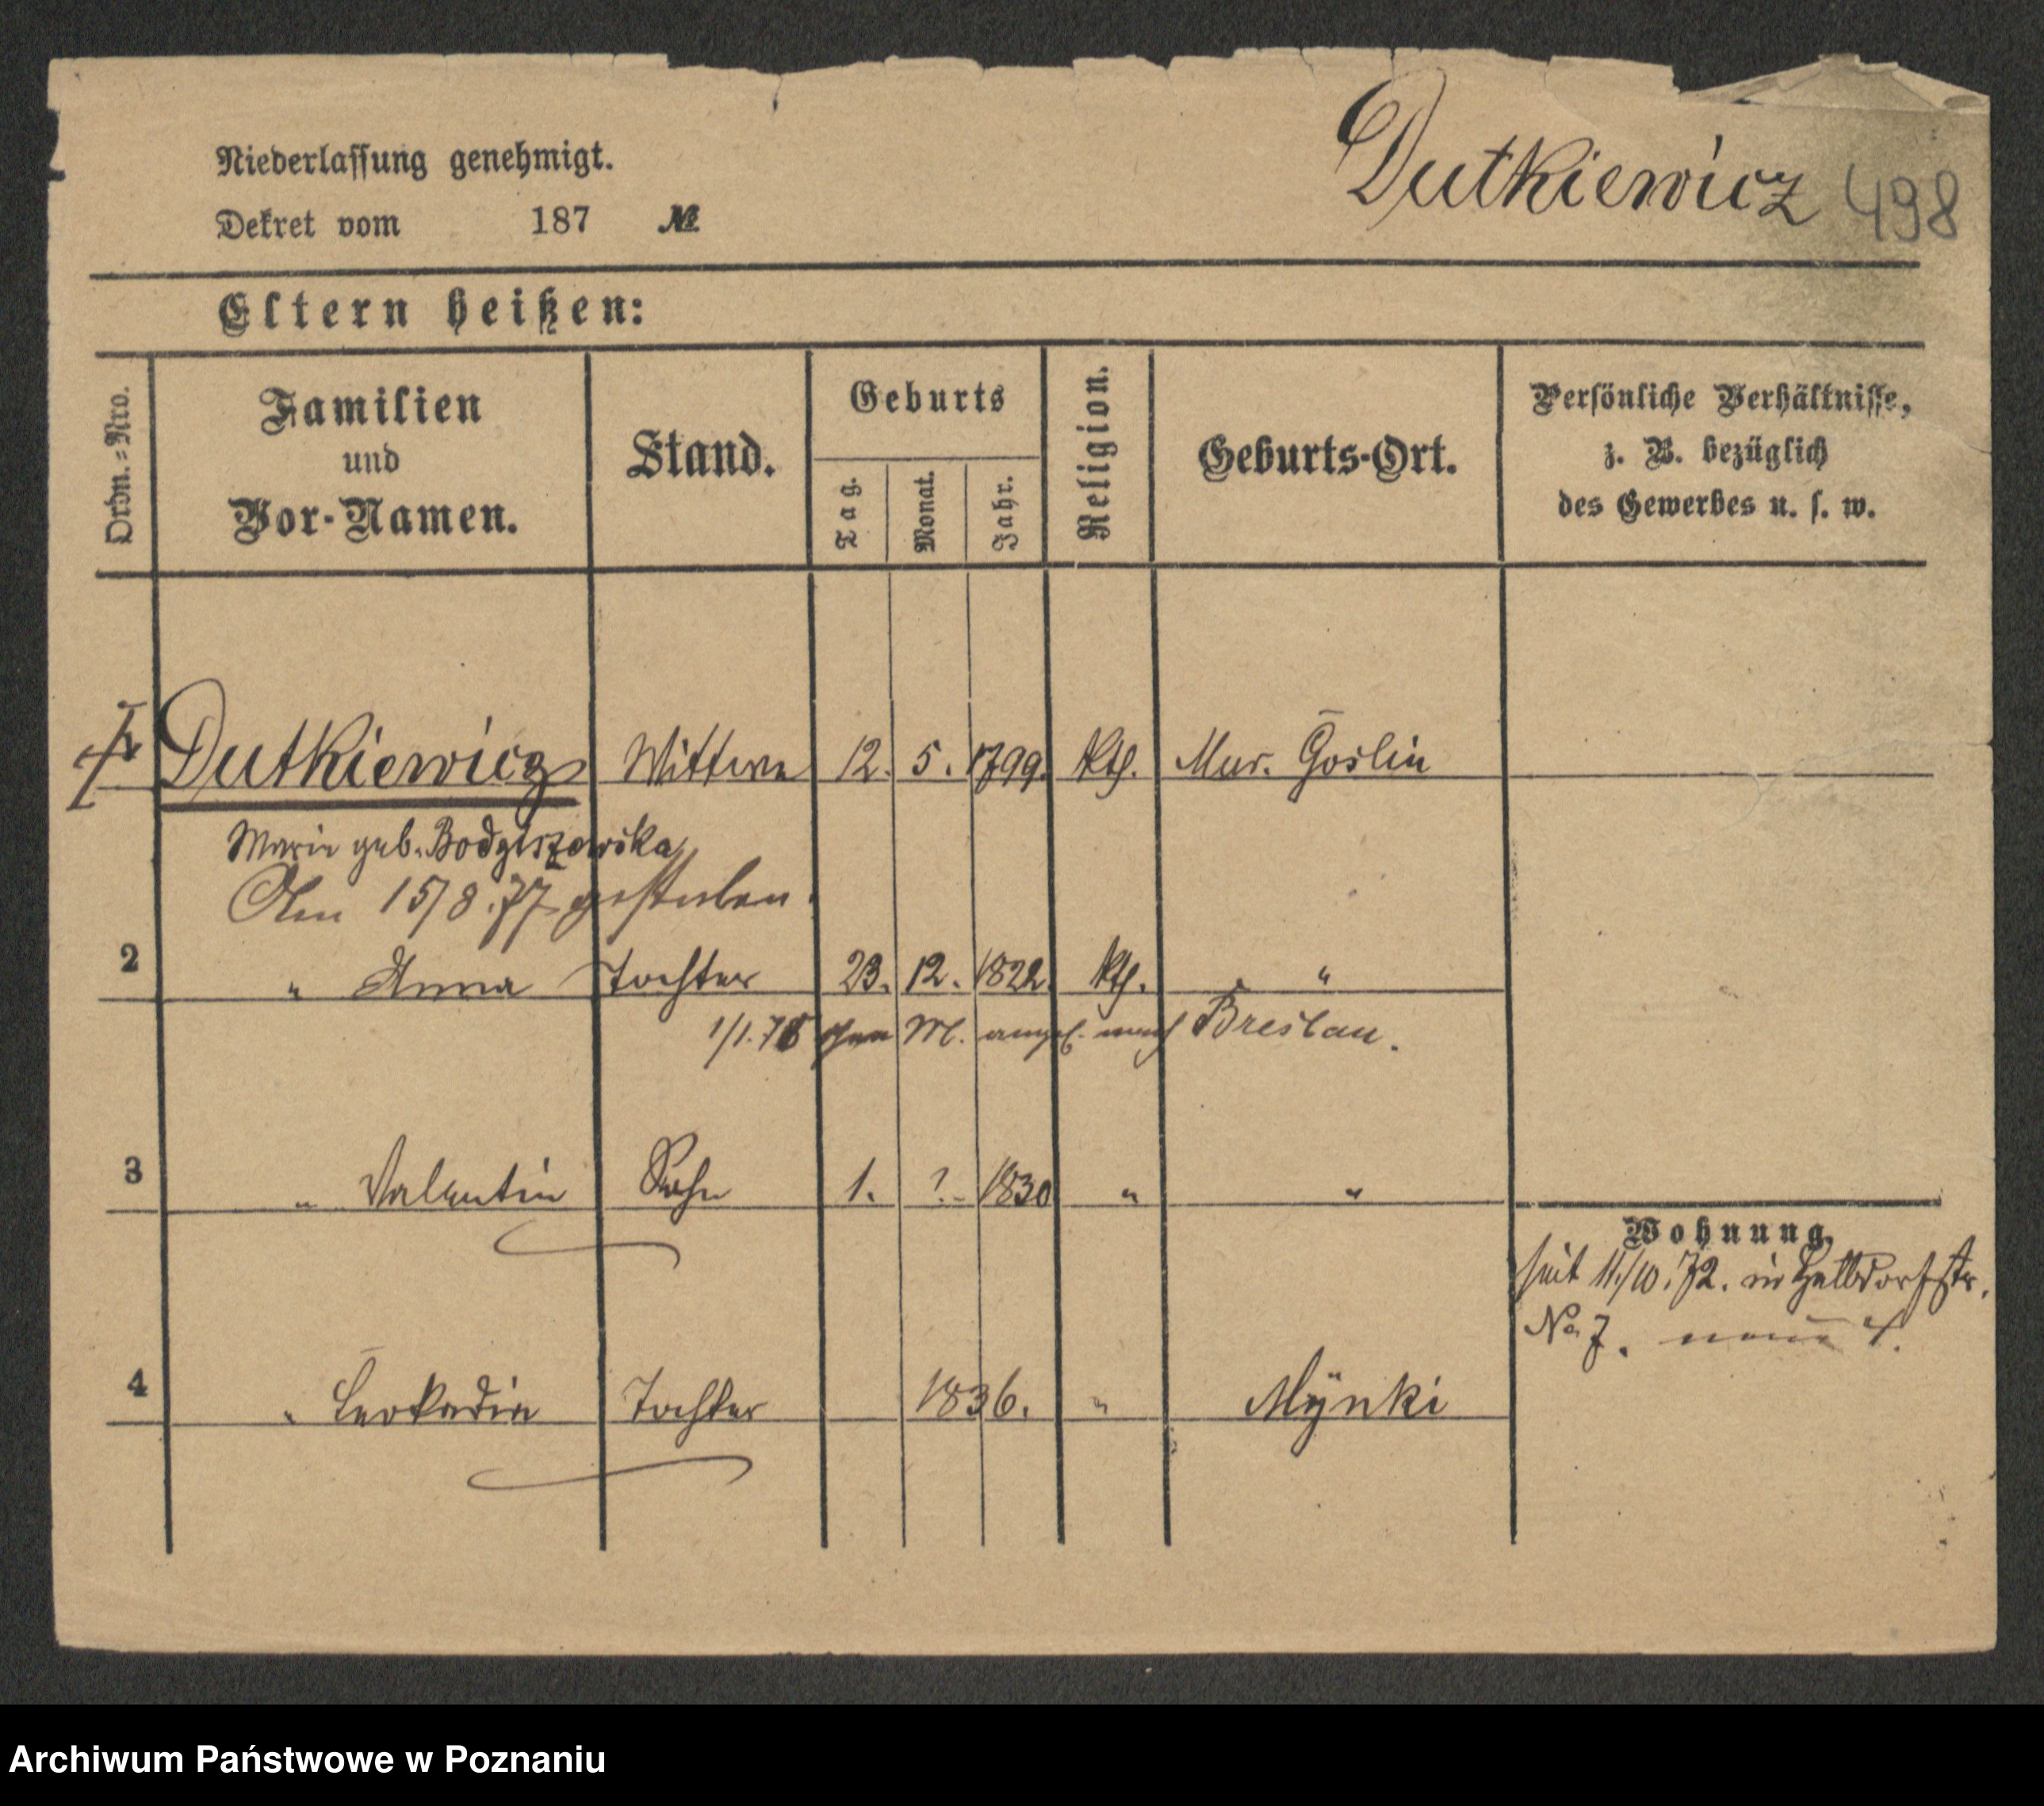 Niederlassung genehmigt.
Dekret vom 187 №
Dutkiewicz 498
Eltern heißen:
Ordn.=Nro.
Familien
und
Vor-Namen.
Stand.
Geburts
Tag.
Monat.
Jahr.
Religion.
Geburts-Ort.
Persönliche Verhältnisse,
z. B. bezüglich
des Gewerbes u. s. w.
Dutkiewicz Wittwe 12. 5. 1799. kth. Mur. Goslin
Marie geb.
Am 15/8.77 gestorben.
2 " Anna Tochter 23. 12. 1822. kth. "
1/1.78 M. nach Breslau.
3 " Valentin Sohn 1. ? 1830 " "
Wohnung.
seit 11/10.72. in Halbdorfstr.
No 7.
4 " Leokadia Tochter 1836. " Mÿnki
Archiwum Państwowe w Poznaniu